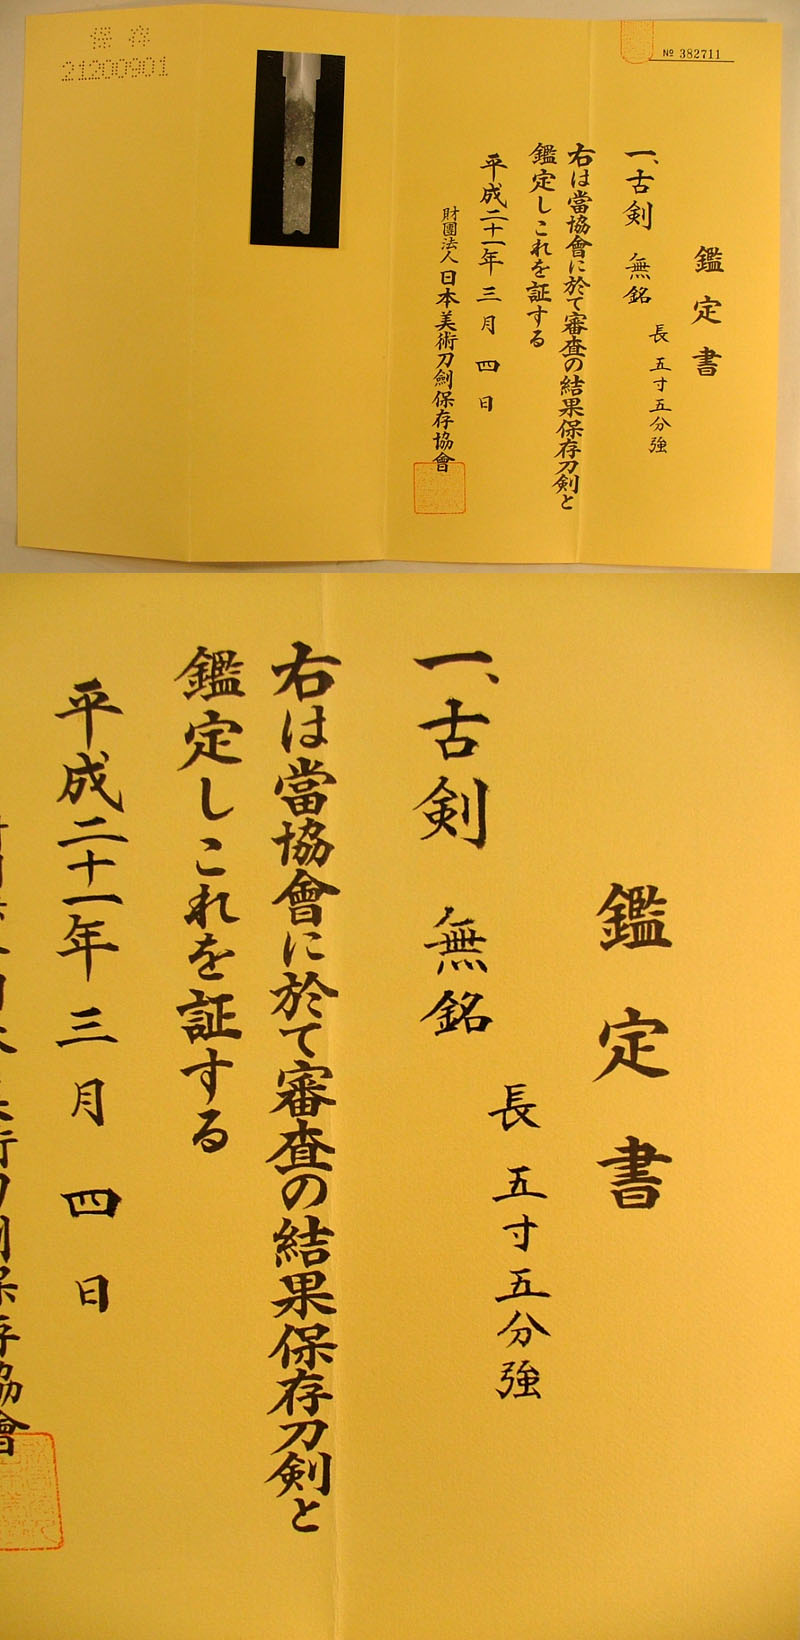 保存
21200901
№ 382711
鑑定書
一、古剣 無銘
長 五寸五分強
右は當協會に於て審査の結果保存刀剣と
鑑定しこれを証する
平成二十一年 三月 四日
財團法人 日本美術刀劍保存協會
鑑定書
一、古剣 無銘
長 五寸五分強
右は當協會に於て審査の結果保存刀剣と
鑑定しこれを証する
平成二十一年 三月 四日